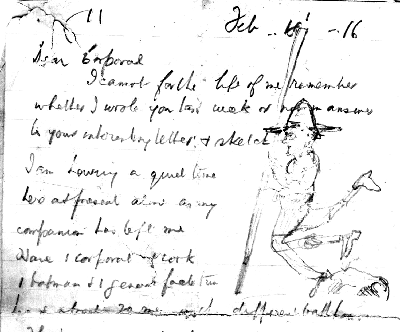 11
Feb 16 - 16
Dear Corporal
I cannot for the life of me remember
whether I wrote you last week or not in answer
to your interesting letter & sketch
I am having a quiet time
here at present alone as my
companion has left me
have 1 corporal 1 cook
1 batman & 1 general
about 20 different